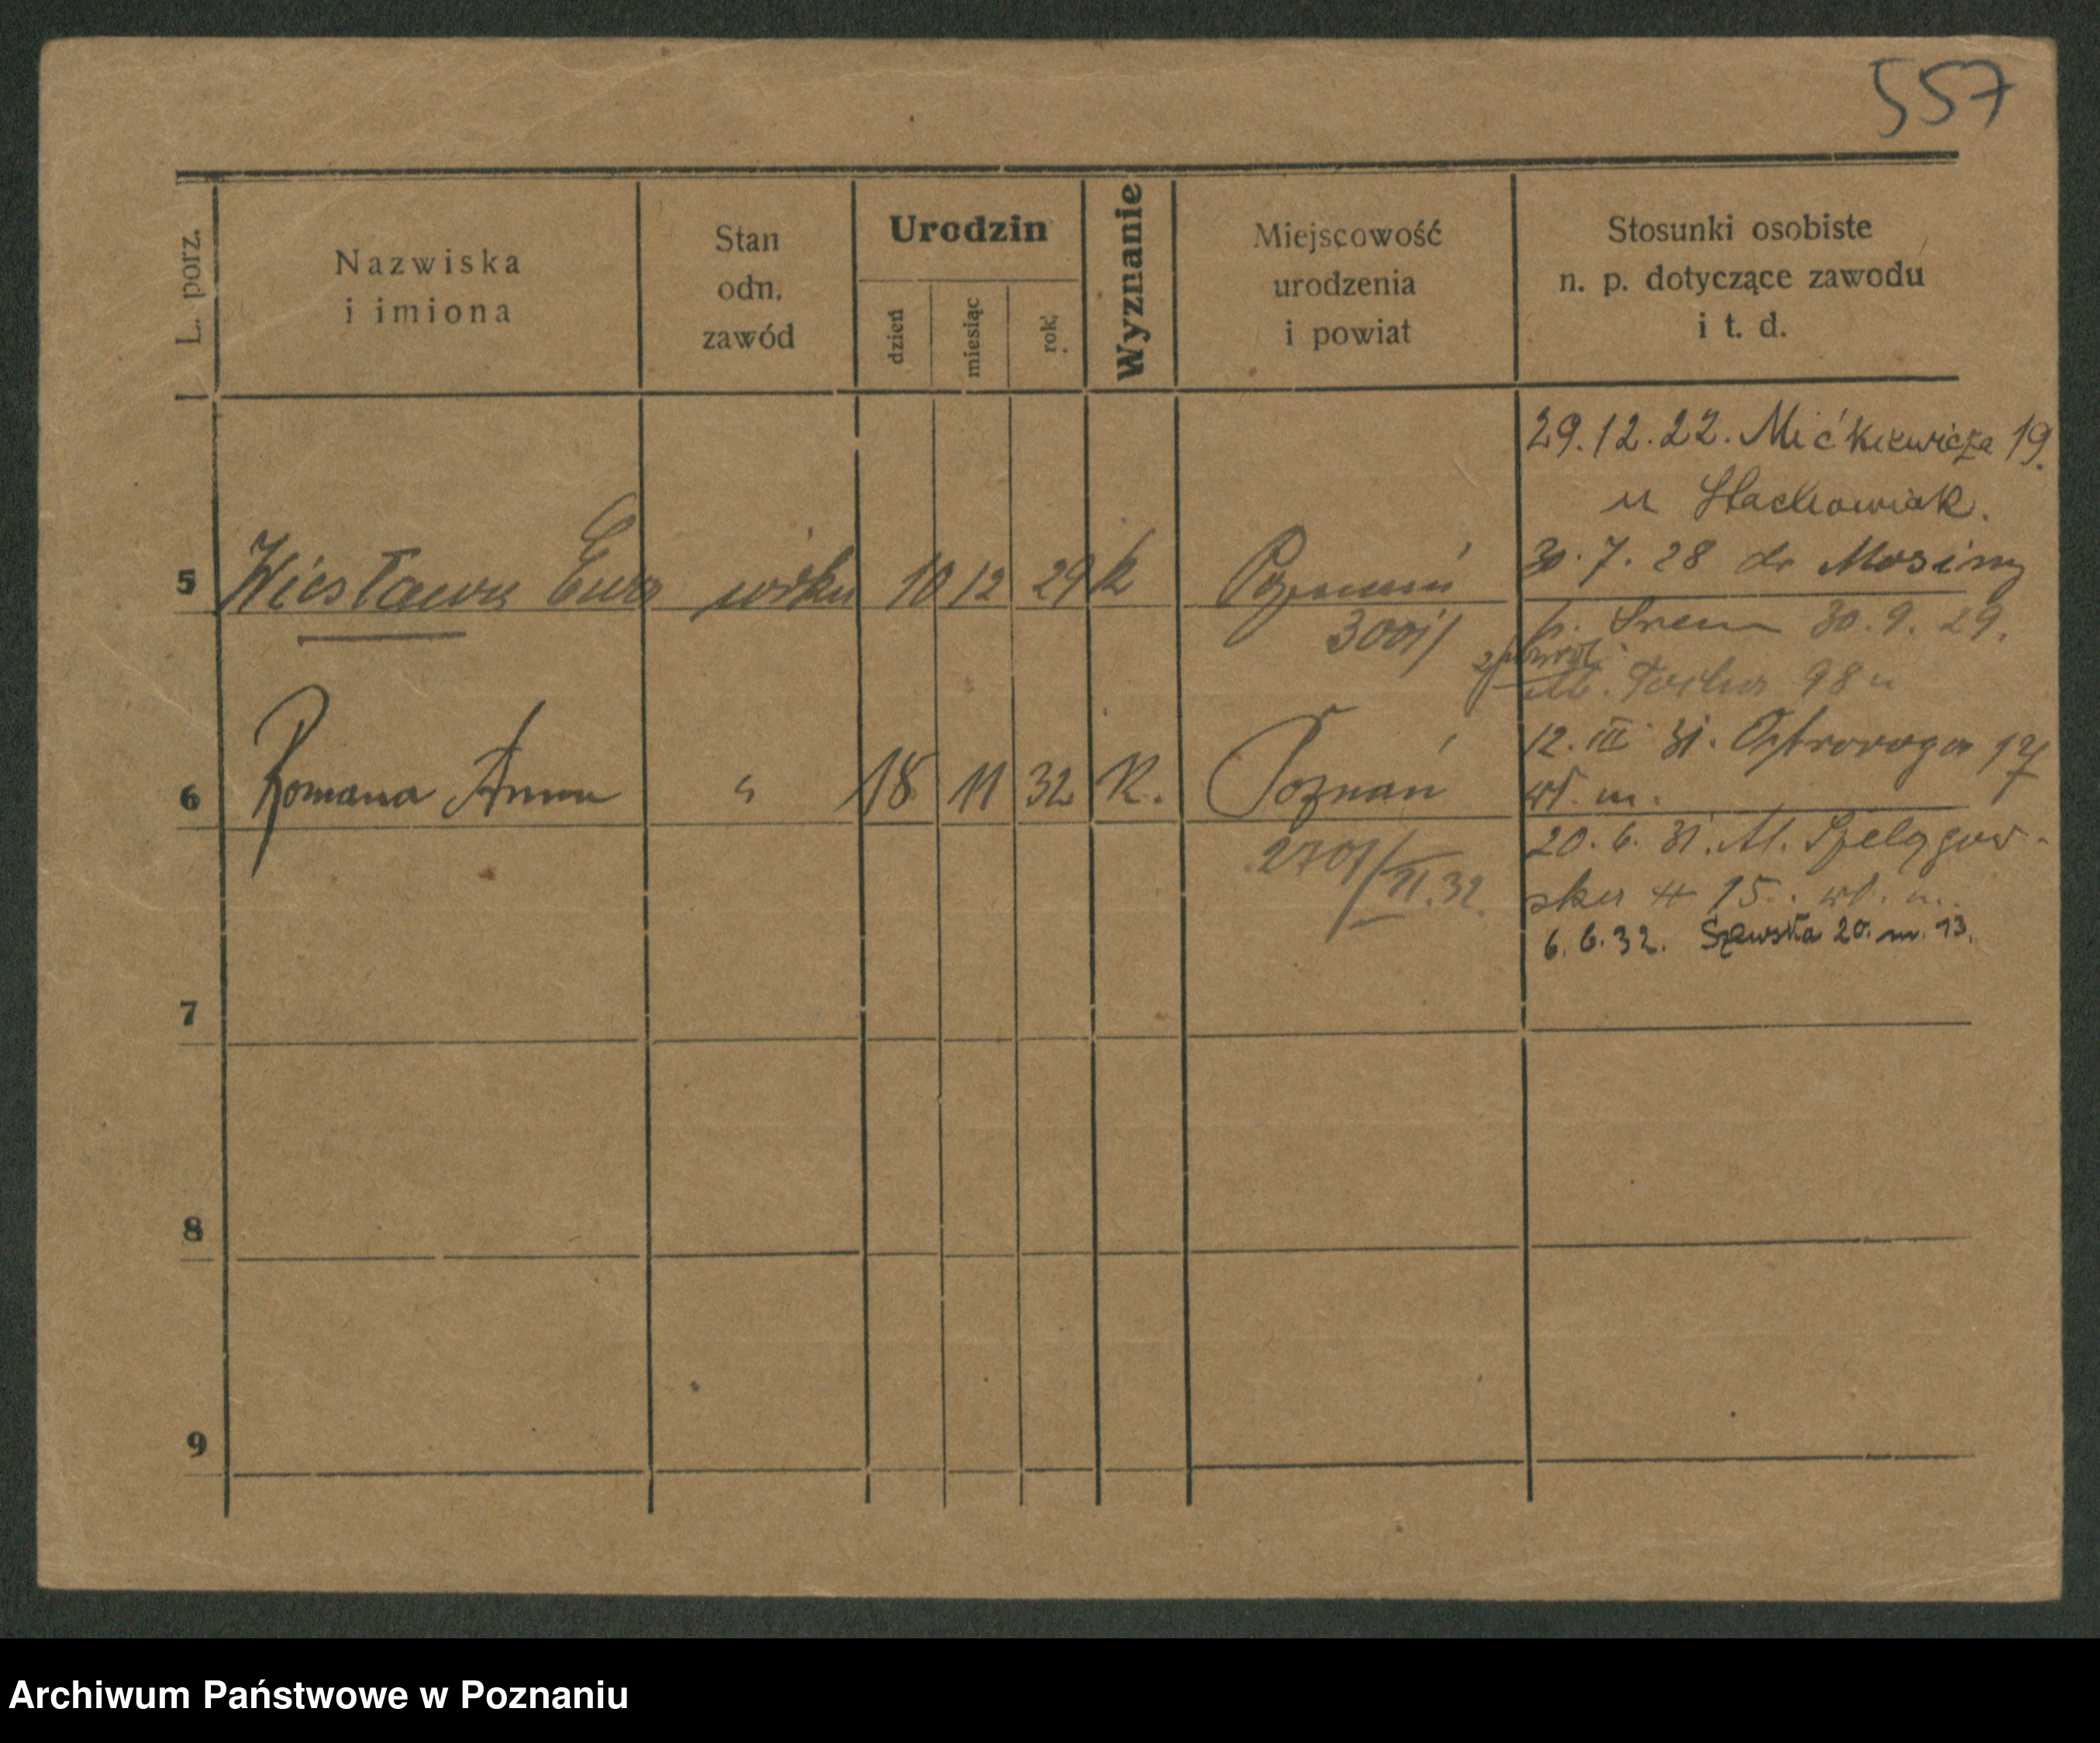 557
L. porz.
Nazwiska
i imiona
Stan
odn.
zawód
Urodzin
dzień
miesiąc
rok
Wyznanie
Miejscowość
urodzenia
i powiat
Stosunki osobiste
n. p. dotyczące zawodu
i t. d.
29.12.22. Mićkiewicza 19.
u Stachowiak.
30.7.28 do Mosiny
5 Wiesława Ewa 10 12 29 k Poznań
3001/
p. Śrem 30.9.29.
98
12. III 31. Ostroroga 17
wł. m.
6 Romana Anna " 18 11 32 K. Poznań
2701/VI.32.
20.6.31. Al. Szelągow-
ska 15. wł. m.
6.6.32. Szewska 20. m. 13.
7
8
9
Archiwum Państwowe w Poznaniu